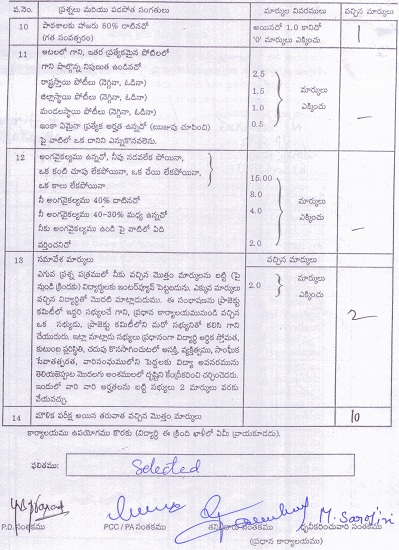 వ.నెం. ప్రశ్నలు మరియు పదపోత సంగతులు మార్కుల వివరములు వచ్చిన మార్కులు
10 పాఠశాలకు హాజరు 80% దాటినచో అయినచో 1.0 కానిచో 1
(గత సంవత్సరం) '0' మార్కులు ఎక్కించు
11 ఆటలలో గాని, ఇతర ప్రత్యేకమైన పోటీలలో
గాని పాల్గొన్న నిపుణుత ఉండినచో 2.5
రాష్ట్రస్థాయి పోటీలు (నెగ్గినా, ఓడినా) 1.5 మార్కులు
జిల్లాస్థాయి పోటీలు (నెగ్గినా, ఓడినా) 1.0 ఎక్కించు
మండలస్థాయి పోటీలు (నెగ్గినా, ఓడినా) 0.5 —
ఇంకా ఏమైనా ప్రత్యేక అర్హత ఉన్నచో (ఋజువు చూపించి)
పై వాటిలో ఒక దానిని ఎన్నుకొనవలెను.
12 అంగవైకల్యము ఉన్నచో, నీవు నడవలేక పోయినా,
ఒక కంటి చూపు లేకపోయినా, ఒక చేయి లేకపోయినా 15.00
ఒక కాలు లేకపోయినా 8.0 మార్కులు
నీ అంగవైకల్యము 40% దాటినచో 4.0 ఎక్కించు
నీ అంగవైకల్యము 40-30% మధ్య ఉన్నచో —
నీకు అంగవైకల్యము ఉండి పై వాటిలో ఏది
వర్తించనిచో 2.0
13 సమావేశ మార్కులు వచ్చిన మార్కులు
ఎగువ ప్రశ్న పత్రములో నీకు వచ్చిన మొత్తం మార్కులను బట్టి (పై మార్కులు
నుండి క్రిందకు) విద్యార్థులకు ఇంటర్వ్యూవ్ పెట్టబడును. ఎక్కువ మార్కులు 2.0 ఎక్కించు
వచ్చిన విద్యార్థితో మొదటి మాట్లాడుదుము. ఈ సంభాషణను ప్రాజెక్టు
కమిటీలో ఇద్దరు సభ్యులచే గాని, ప్రధాన కార్యాలయమునుండి వచ్చిన 2
ఒక సభ్యుడు, ప్రాజెక్టు కమిటీలోని మరో సభ్యునితో కలిసి గాని
చేయుదురు. ఇట్లా మాట్లాడు సభ్యులు ప్రధానంగా విద్యార్థి ఆర్థిక స్తోమత,
కుటుంబ పరిస్థితి, చదువు కొనసాగించుటలో ఆసక్తి, వ్యక్తిత్వము, సాంఘిక
సేవాతత్పరత, వారసంఘములోని పెద్దలకు విద్యా అవసరమును
తెలియజెప్పుట మొదలగు అంశములలో దృష్టిని కేంద్రీకరించి చర్చించెదరు.
ఇందులో వారి వారి అర్హతలను బట్టి సభ్యులు 2 మార్కులు వరకు
వేయవచ్చు.
14 మౌళిక పరీక్ష అయిన తరువాత వచ్చిన మొత్తం మార్కులు 10
కార్యాలయము ఉపయోగము కొరకు (విద్యార్థి ఈ క్రింది ఖాళీలో ఏమీ వ్రాయకూడదు).
ఫలితము: Selected
M. Sarojini
P.D. సంతకము PCC / PA సంతకము తనిఖీదారు సంతకము ధృవీకరించువారి సంతకము
(ప్రధాన కార్యాలయము)